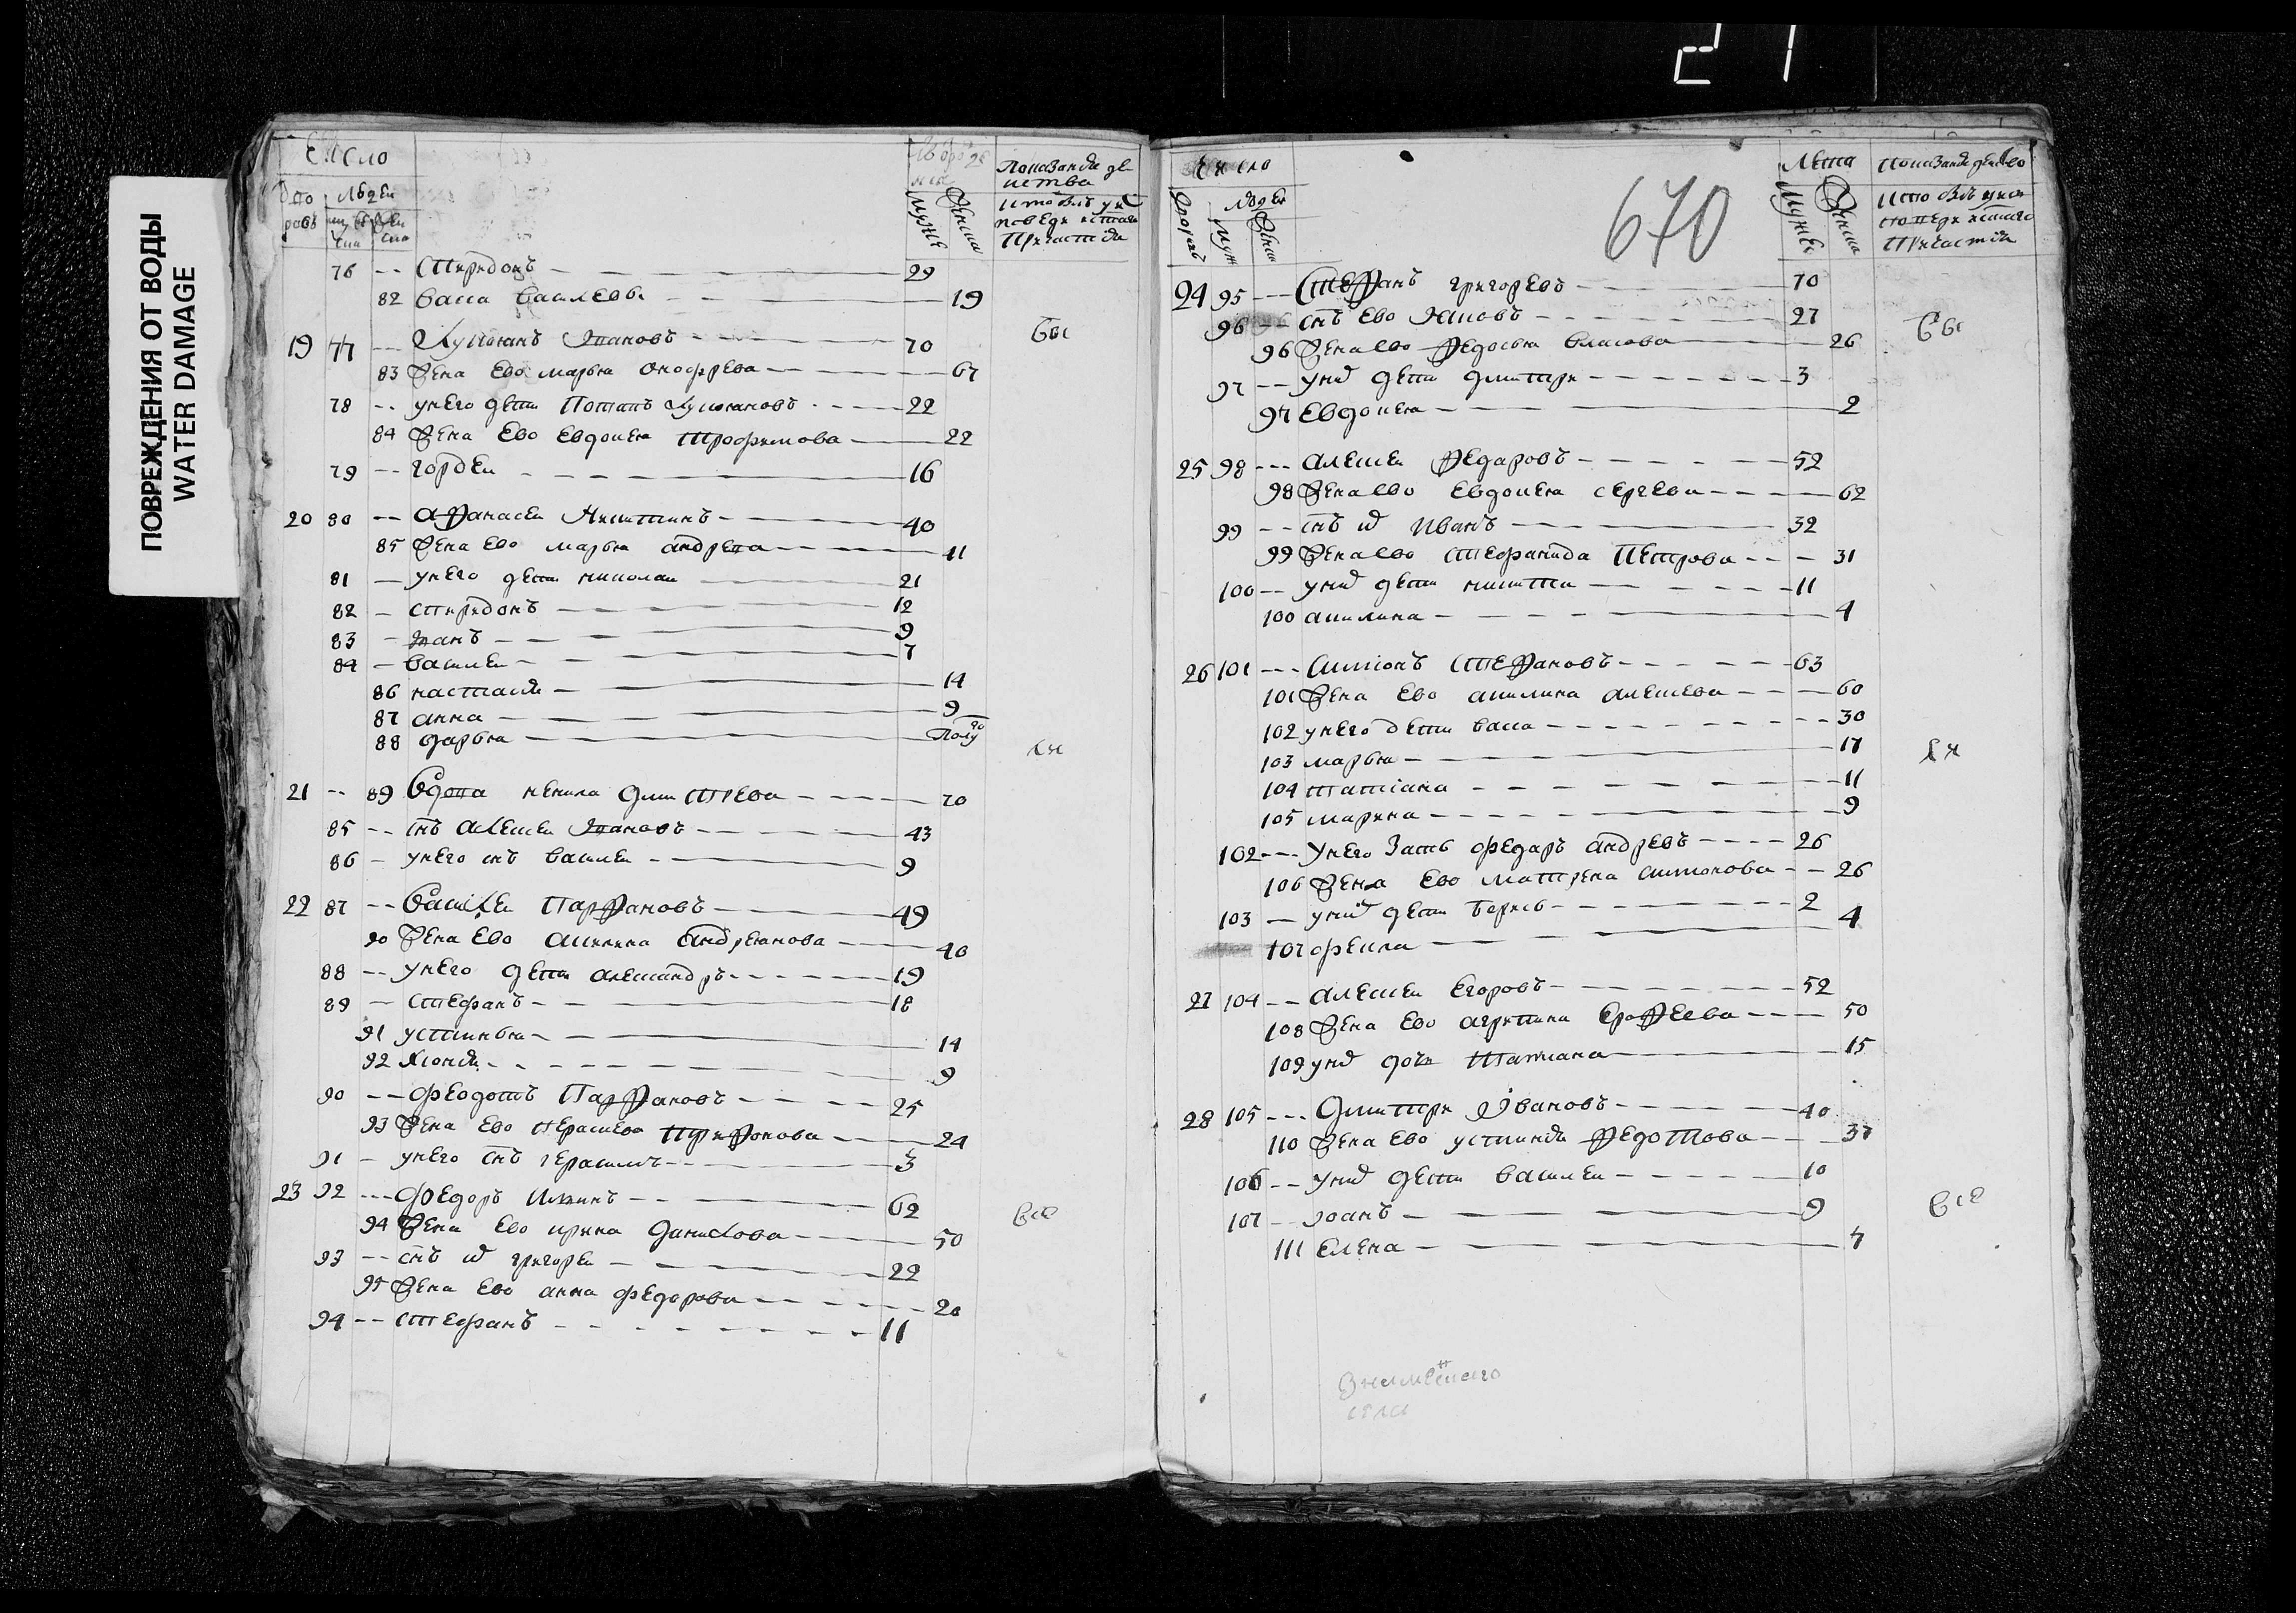 ПОВРЕЖДЕНИЯ ОТ ВОДЫ
WATER DAMAGE
21
Число
людеи
Показание деиства
кто был у исповеди и святаго
Причастия
76 -- Спиридонъ 29
82 васса васильева 19
19 77 -- Лукиянъ Иоановъ 70
83 жена ево марья онофрева 67
78 -- у него дети Потапъ Лукияновъ 22
84 жена ево евдокея трофимова 22
79 -- гордеи 16
20 80 -- афанасеи Никитинъ 40
85 жена ево марья андреева 41
81 -- у него дети николаи 21
82 -- спиридонъ 12
83 -- иоанъ 9
84 -- василеи 7
86 настасия 14
87 анна 9
88 дарья полу
21 -- 89 вдова ненила 70
85 -- снъ алексеи Иоановъ 43
86 -- у него снъ василеи 9
22 87 -- василеи Парфановъ 49
90 жена ево акилина андреянова 40
88 -- у него дети александръ 19
89 -- стефанъ 18
91 устинья 14
92 9
90 -- феодотъ Парфановъ 25
93 жена ево Прасковя 24
91 -- у него снъ герасимъ 3
23 92 --- федоръ Илиинъ 62
94 жена ево ирина данилова 50
93 -- снъ их григореи 22
95 жена ево анна федорова 20
94 -- стефанъ 11
все
Число
людеи
Лета
мужескъ
женска
670
Показание деиство
кто был у исповеди и святаго
Причастия
24 95 --- Стефанъ григоревъ 70
96 -- снъ ево Яковъ 27
96 жена ево федосья власова 26
97 -- у них дети дмитреи 3
97 евдокея 2
25 98 --- алексеи федаровъ 52
98 жена ево евдокея сергева 62
99 -- снъ их иванъ 32
99 жена ево стефанида Петрова 31
100 -- у них дети никита 11
100 акилина 4
26 101 --- симионъ стефановъ 63
101 жена ево акилина алексева 60
102 у него дети васса 30
103 марья 17
104 татиана 11
105 марина 9
102 --- у него зать федаръ андревъ 26
106 жена ево матрена симионова 26
103 -- у них дети борисъ 2
107 фекла 4
27 104 -- алексеи егоровъ 52
108 жена ево агрипина ерофеева 50
109 у них дочь татиана 15
28 105 --- Дмитреи Ивановъ 40
110 жена ево устиния федотова 37
106 -- у них дети василеи 10
107 -- иоанъ 9
111 елена 7
все